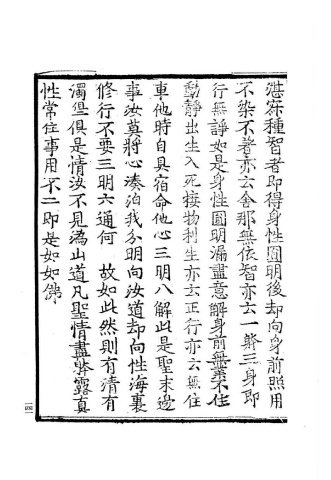 湛寂種智者即得身性圓明後却向身前照用
不染不著亦云舍那無依智亦云一躰三身即
行無諍如是身性圓明漏盡意解身前無業不住
動靜出生入死接物利生亦云正行亦云無住
車他時自具宿命他心三明八解此是聖末邊
事汝莫將心湊泊我分明向汝道却向性海裏
修行不要三明六通何 故如此然則有清有
濁俱是情汝不見溈山道凡聖情盡躰露真
性常住事用不二即是如如佛